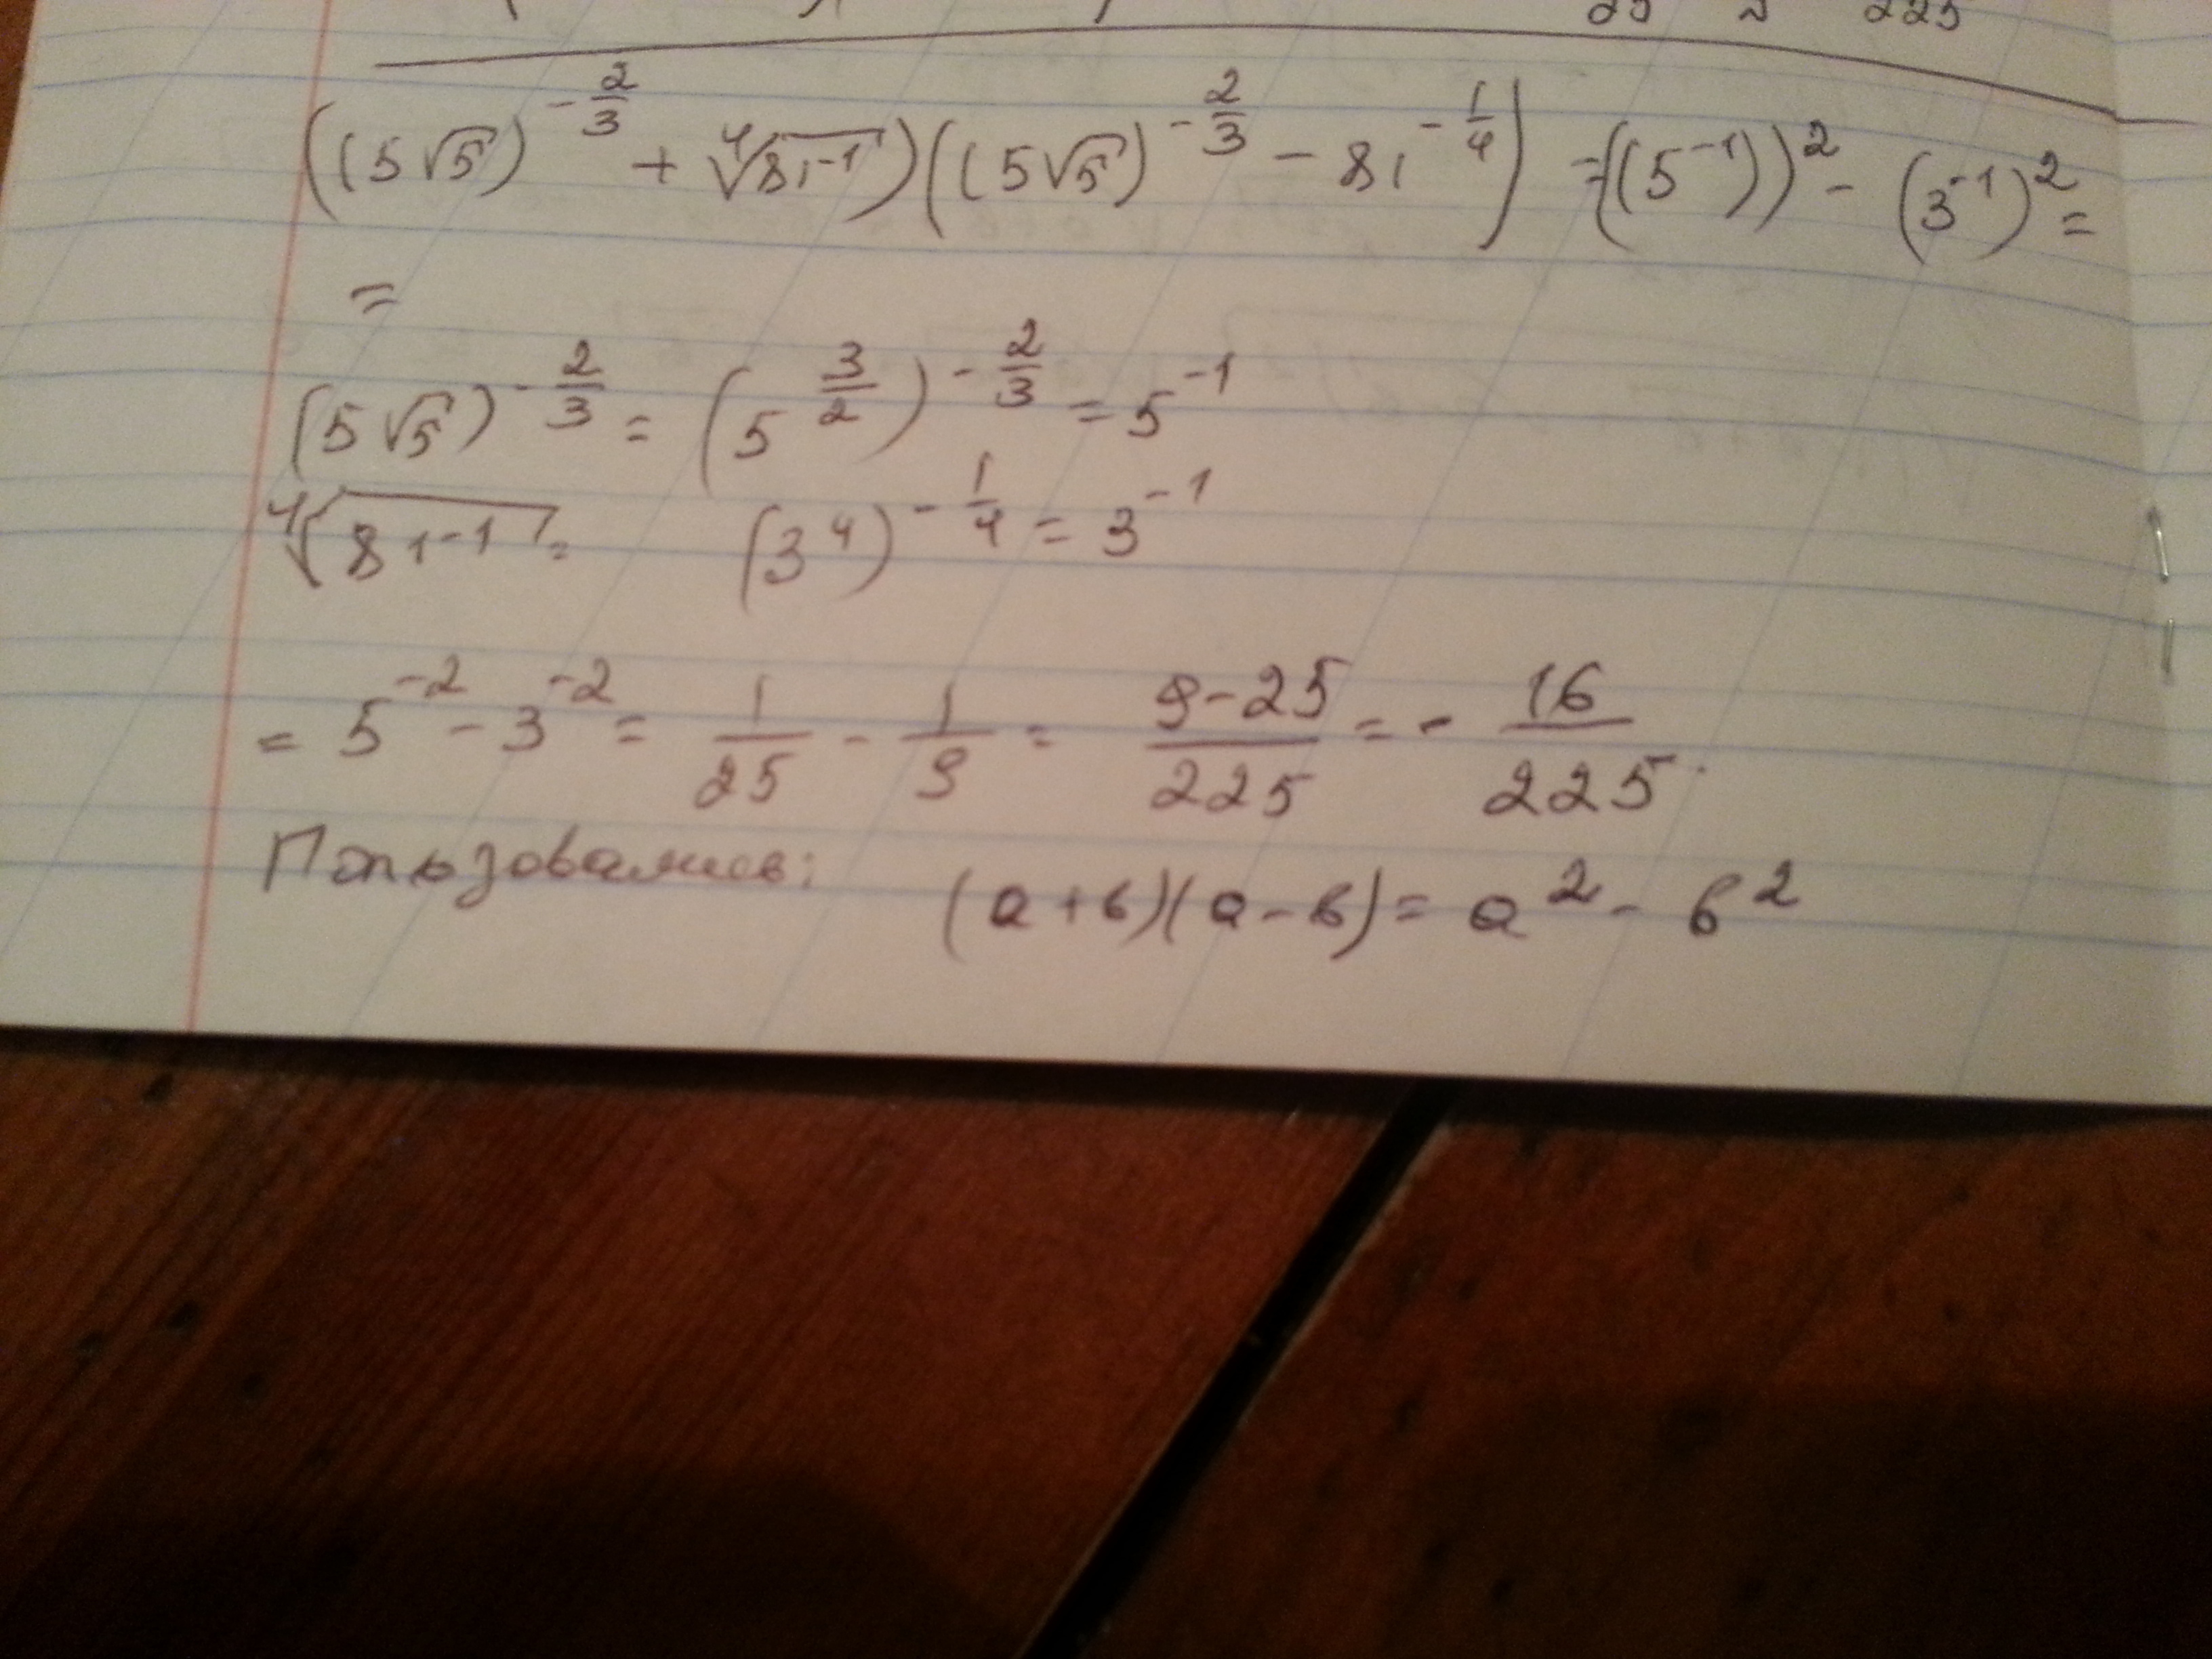 25 225
((5√5)^(-2/3) + ⁴√(81^(-1)))((5√5)^(-2/3) - 81^(-1/4)) = ((5^(-1)))^2 - (3^(-1))^2 =
=
(5√5)^(-2/3) = (5^(3/2))^(-2/3) = 5^(-1)
⁴√(81^(-1)) = (3^4)^(-1/4) = 3^(-1)
= 5^(-2) - 3^(-2) = 1/25 - 1/9 = (9-25)/225 = - 16/225.
Пользовались: (a+b)(a-b) = a^2 - b^2